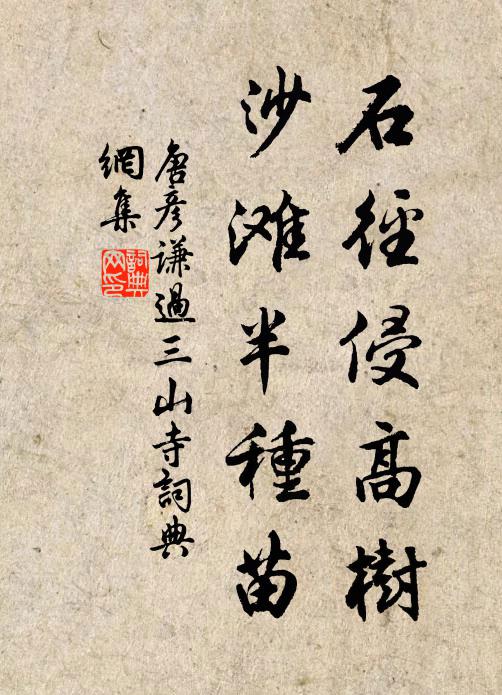 石徑侵高樹
沙滩半種苗
唐彥谦過三山寺詞典
網集
詞典
网印